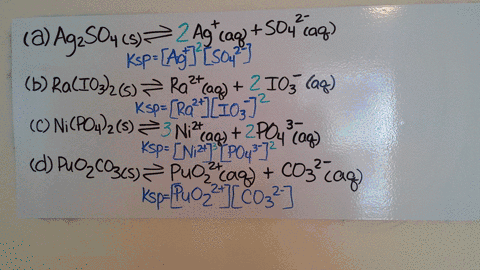 (a) Ag₂SO₄(s) ⇌ 2 Ag⁺(aq) + SO₄²⁻(aq)
Ksp=[Ag⁺]²[SO₄²⁻]
(b) Ra(IO₃)₂(s) ⇌ Ra²⁺(aq) + 2 IO₃⁻(aq)
Ksp=[Ra²⁺][IO₃⁻]²
(c) Ni(PO₄)₂(s) ⇌ 3 Ni²⁺(aq) + 2PO₄³⁻(aq)
Ksp=[Ni²⁺]³[PO₄³⁻]²
(d) PuO₂CO₃(s) ⇌ PuO₂²⁺(aq) + CO₃²⁻(aq)
Ksp=[PuO₂²⁺][CO₃²⁻]